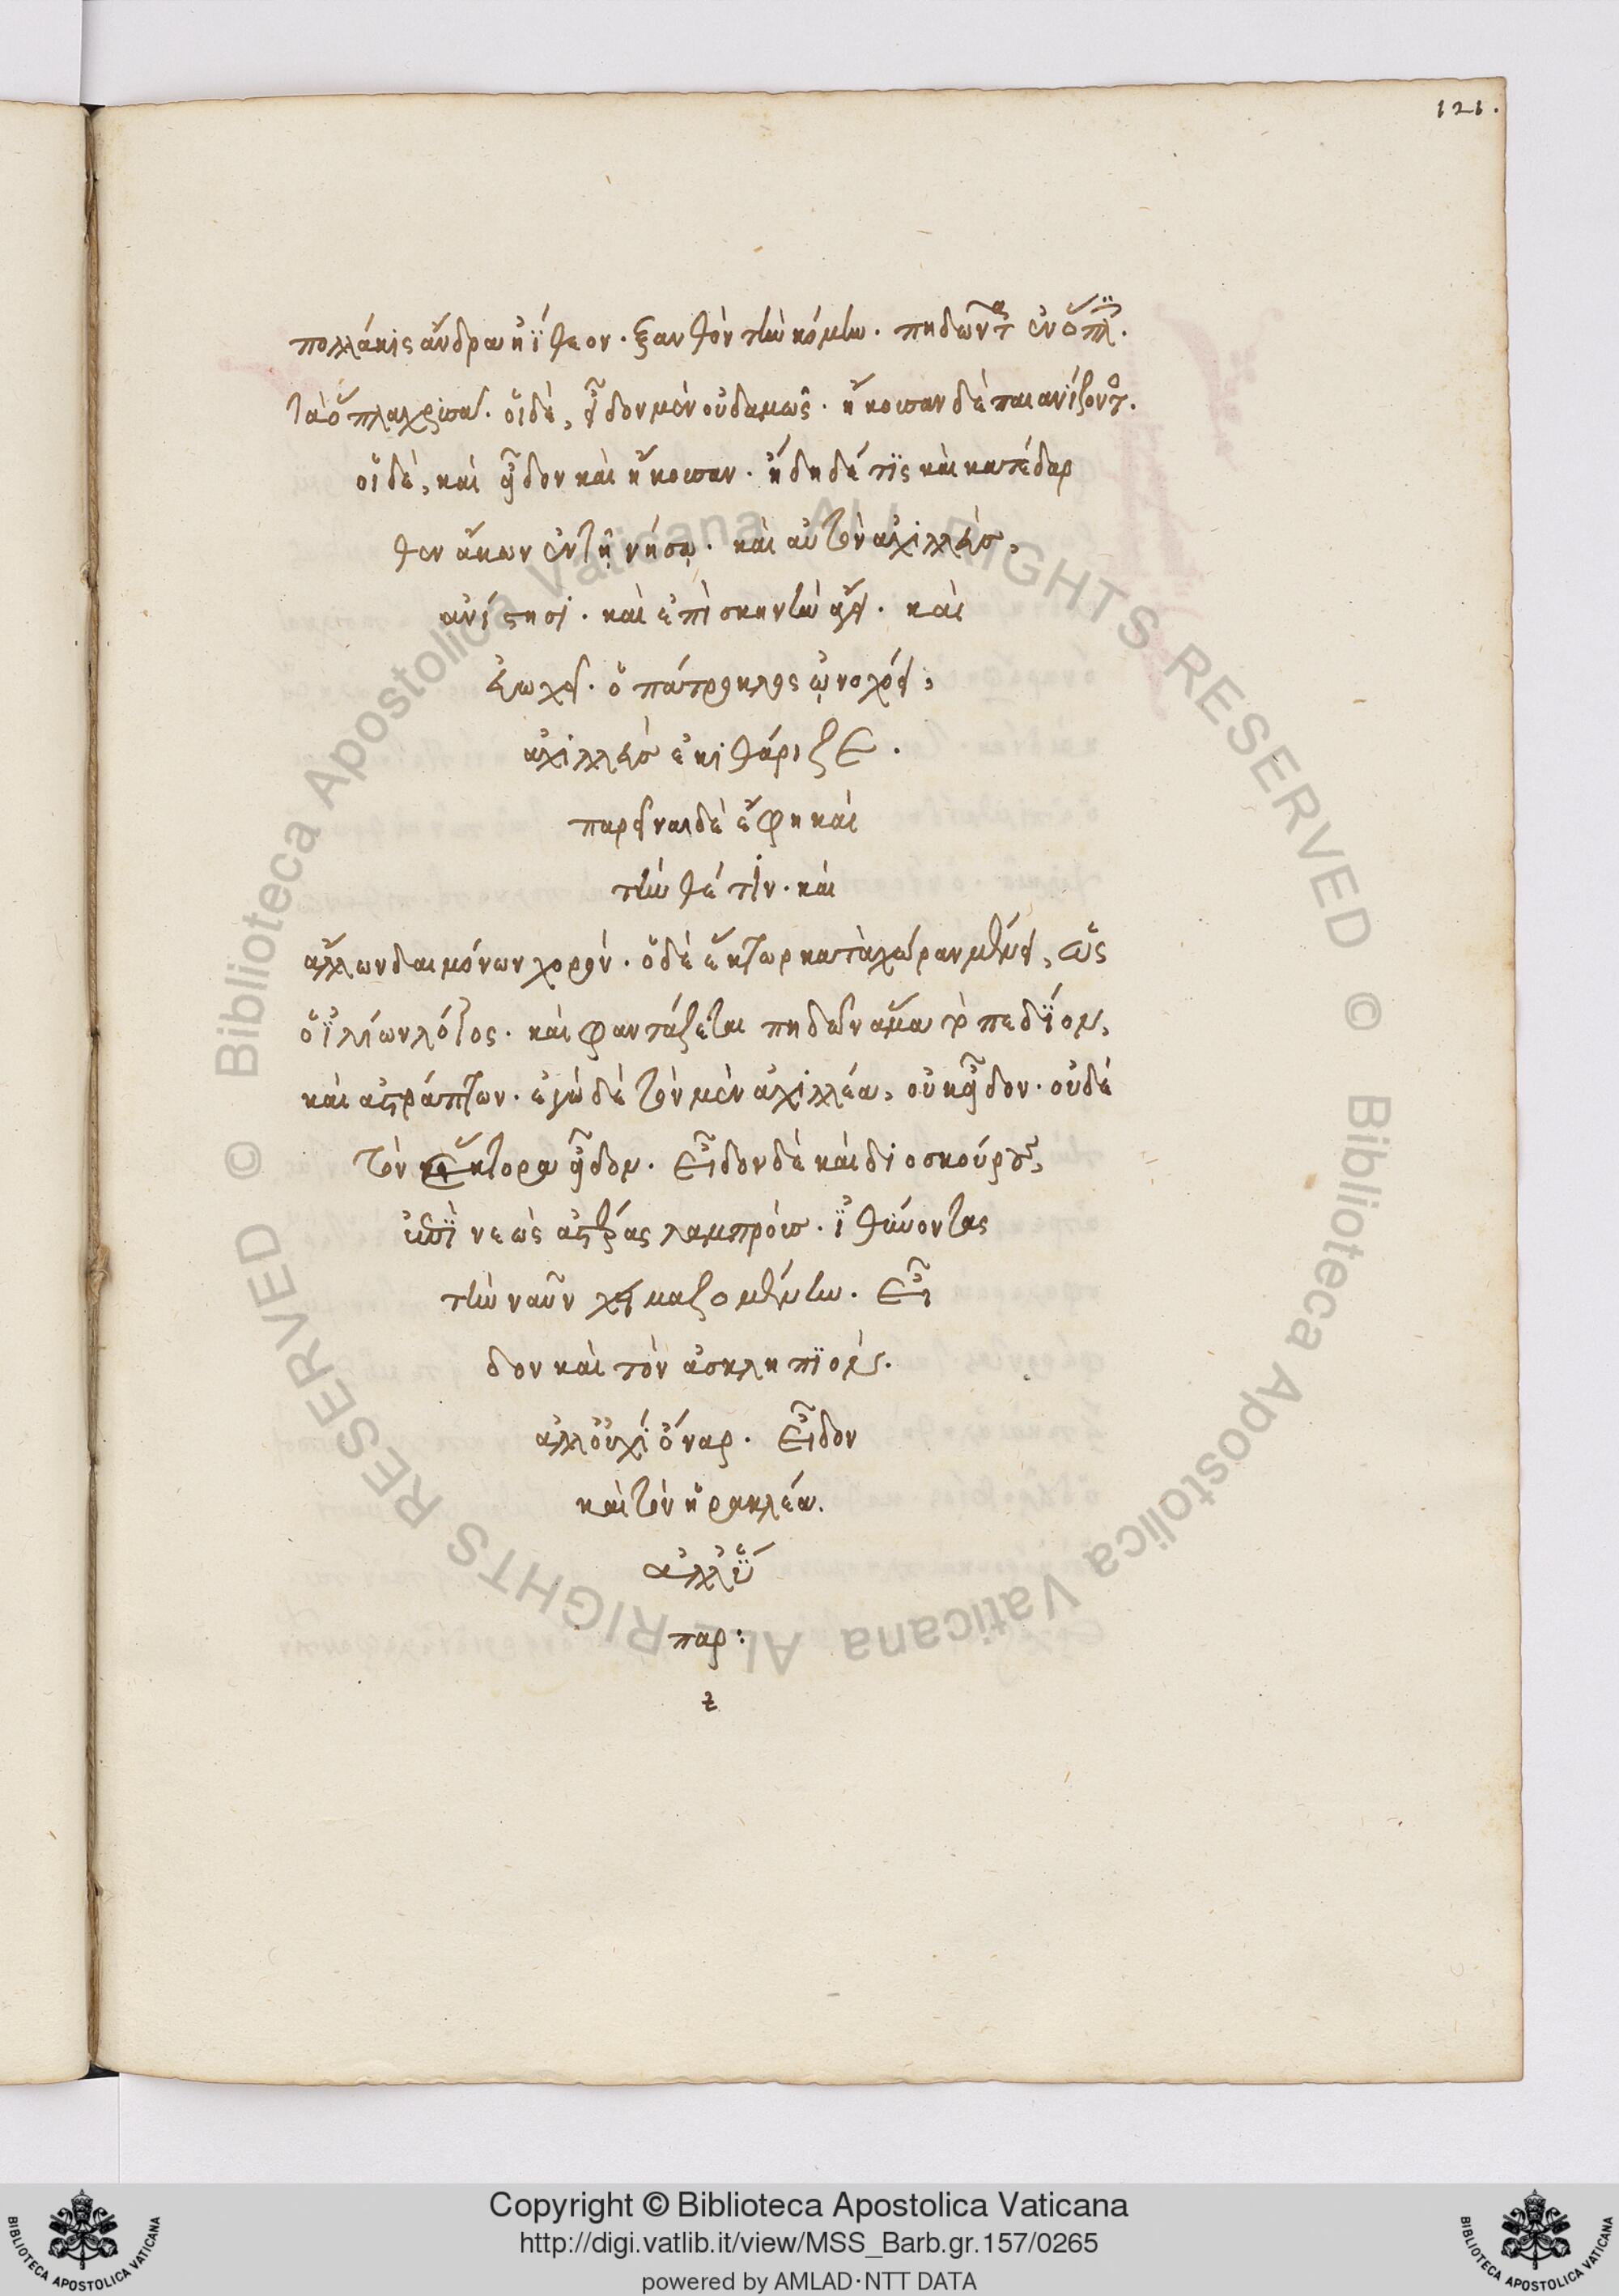 121.
πολλάκις ἄνδρα ἠΐθεον. ξανθὸν τὴν κόμην. πηδῶντα ἐν ὅπλοις.
τὰ ὅπλα χρυσᾶ. οἱ δὲ, εἶδον μὲν οὐδαμῶς. ἤκουσαν δὲ παιανίζοντος.
οἱ δὲ, καὶ εἶδον καὶ ἤκουσαν. ἤδη δέ τις καὶ κατέδαρ
θεν ἄκων ἐν τῇ νήσῳ. καὶ αὐτὸν ἀχιλλεὺς,
ἀνίστησι. καὶ ἐπὶ σκηνὴν ἄγει. καὶ
εὐωχεῖ. ὁ πάτροκλος ᾠνοχόει,
ἀχιλλεὺς ἐκιθάριζε.
παρεῖναι δὲ ἔφη καὶ
τὴν θέτιν. καὶ
ἄλλων δαιμόνων χορόν. ὁ δὲ ἕκτωρ κατὰ χώραν μένει, ὡς
ὁ ἰλιέων λόγος. καὶ φαντάζεται πηδῶν ἅμα τὸ πεδίον,
καὶ ἀστράπτων. ἐγὼ δὲ τὸν μὲν ἀχιλλέα, οὐκ εἶδον. οὐδὲ
τὸν ἕκτορα εἶδον. εἶδον δὲ καὶ διοσκούρους,
ἐπὶ νεὼς ἀστέρας λαμπρούς. ἰθύνοντας
τὴν ναῦν χειμαζομένην. εἶ
δον καὶ τὸν ἀσκληπιὸν.
ἀλλ' οὐχὶ ὄναρ. εἶδον
καὶ τὸν ἡρακλέα.
ἀλλ' ὕ
παρ:
Copyright © Biblioteca Apostolica Vaticana
http://digi.vatlib.it/view/MSS_Barb.gr.157/0265
powered by AMLAD·NTT DATA
BIBLIOTECA APOSTOLICA VATICANA
BIBLIOTECA APOSTOLICA VATICANA
© Biblioteca Apostolica Vaticana ALL RIGHTS RESERVED
© Biblioteca Apostolica Vaticana ALL RIGHTS RESERVED